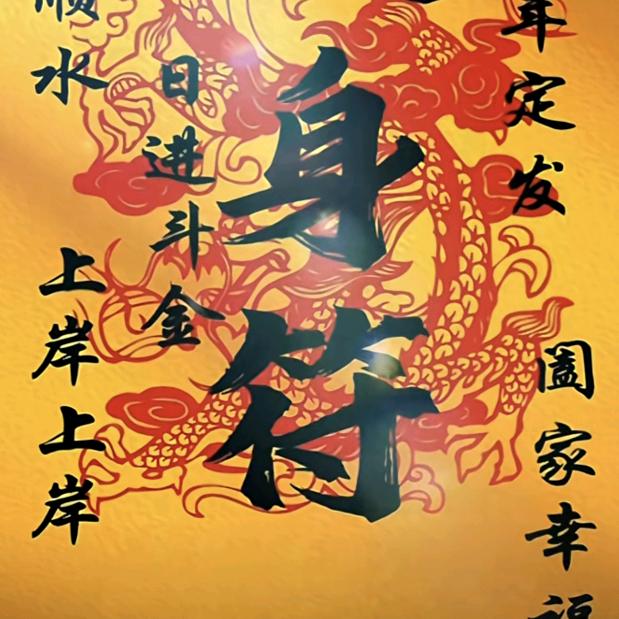 年定发
阖家幸福
身符
日进斗金
顺水
上岸上岸